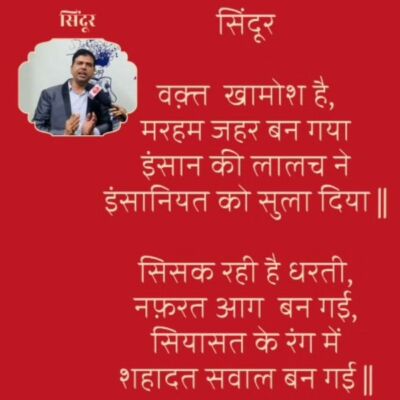 सिंदूर
सिंदूर
वक़्त खामोश है,
मरहम जहर बन गया
इंसान की लालच ने
इंसानियत को सुला दिया ||
सिसक रही है धरती,
नफ़रत आग बन गई,
सियासत के रंग में
शहादत सवाल बन गई ||